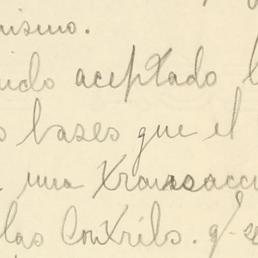 nismo.
nido aceptado l
s bases que el
una Transacci
las Contribs. q. se